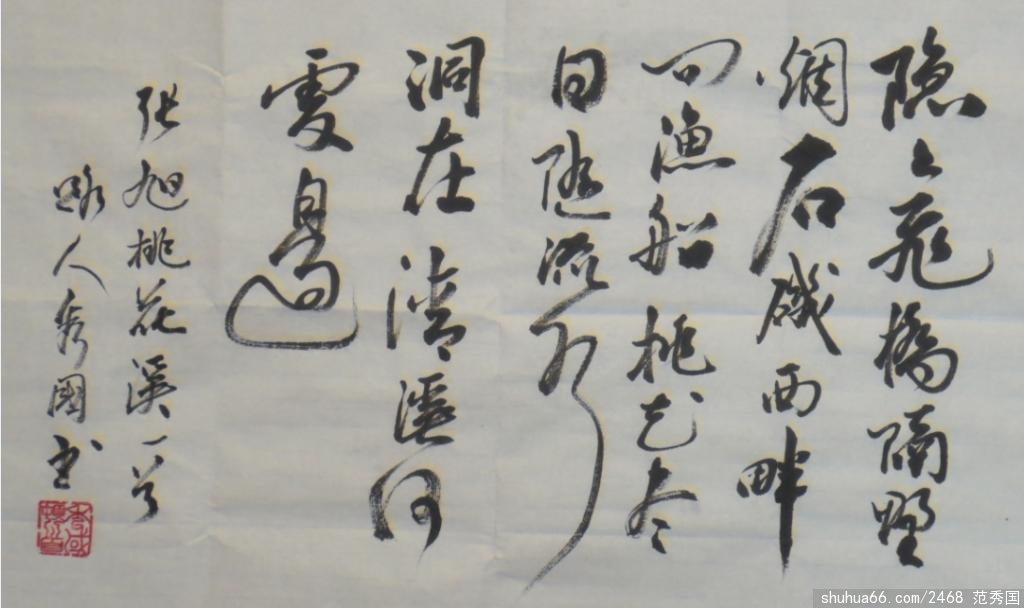 隐〻飛橋隔野
烟石磯西畔
问渔船桃花尽
日随流水
洞在清溪何
處邊
张旭桃花溪一首
路人秀國书
shuhua66.com/2468 范秀国